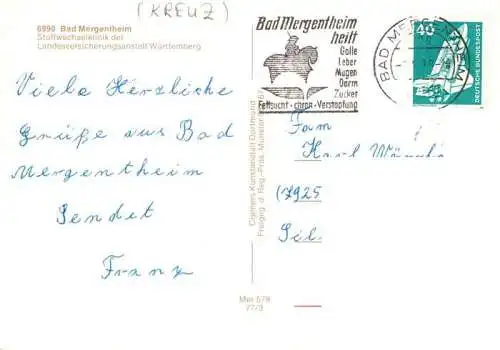 (KREUZ)
6990 Bad Mergentheim
Stoffwechselklinik der
Landesversicherungsanstalt Württemberg
Viele Herzliche
Grüße aus Bad
Mergentheim
Sendet
Franz
Cramers Kunstanstalt Dortmund
Mer 579
77/3
Bad Mergentheim
heilt
Galle
Leber
Magen
Darm
Zucker
Fettsucht - chron. Verstopfung
BAD MERGENTHEIM
40
DEUTSCHE BUNDESPOST
Fam
Karl
(7925